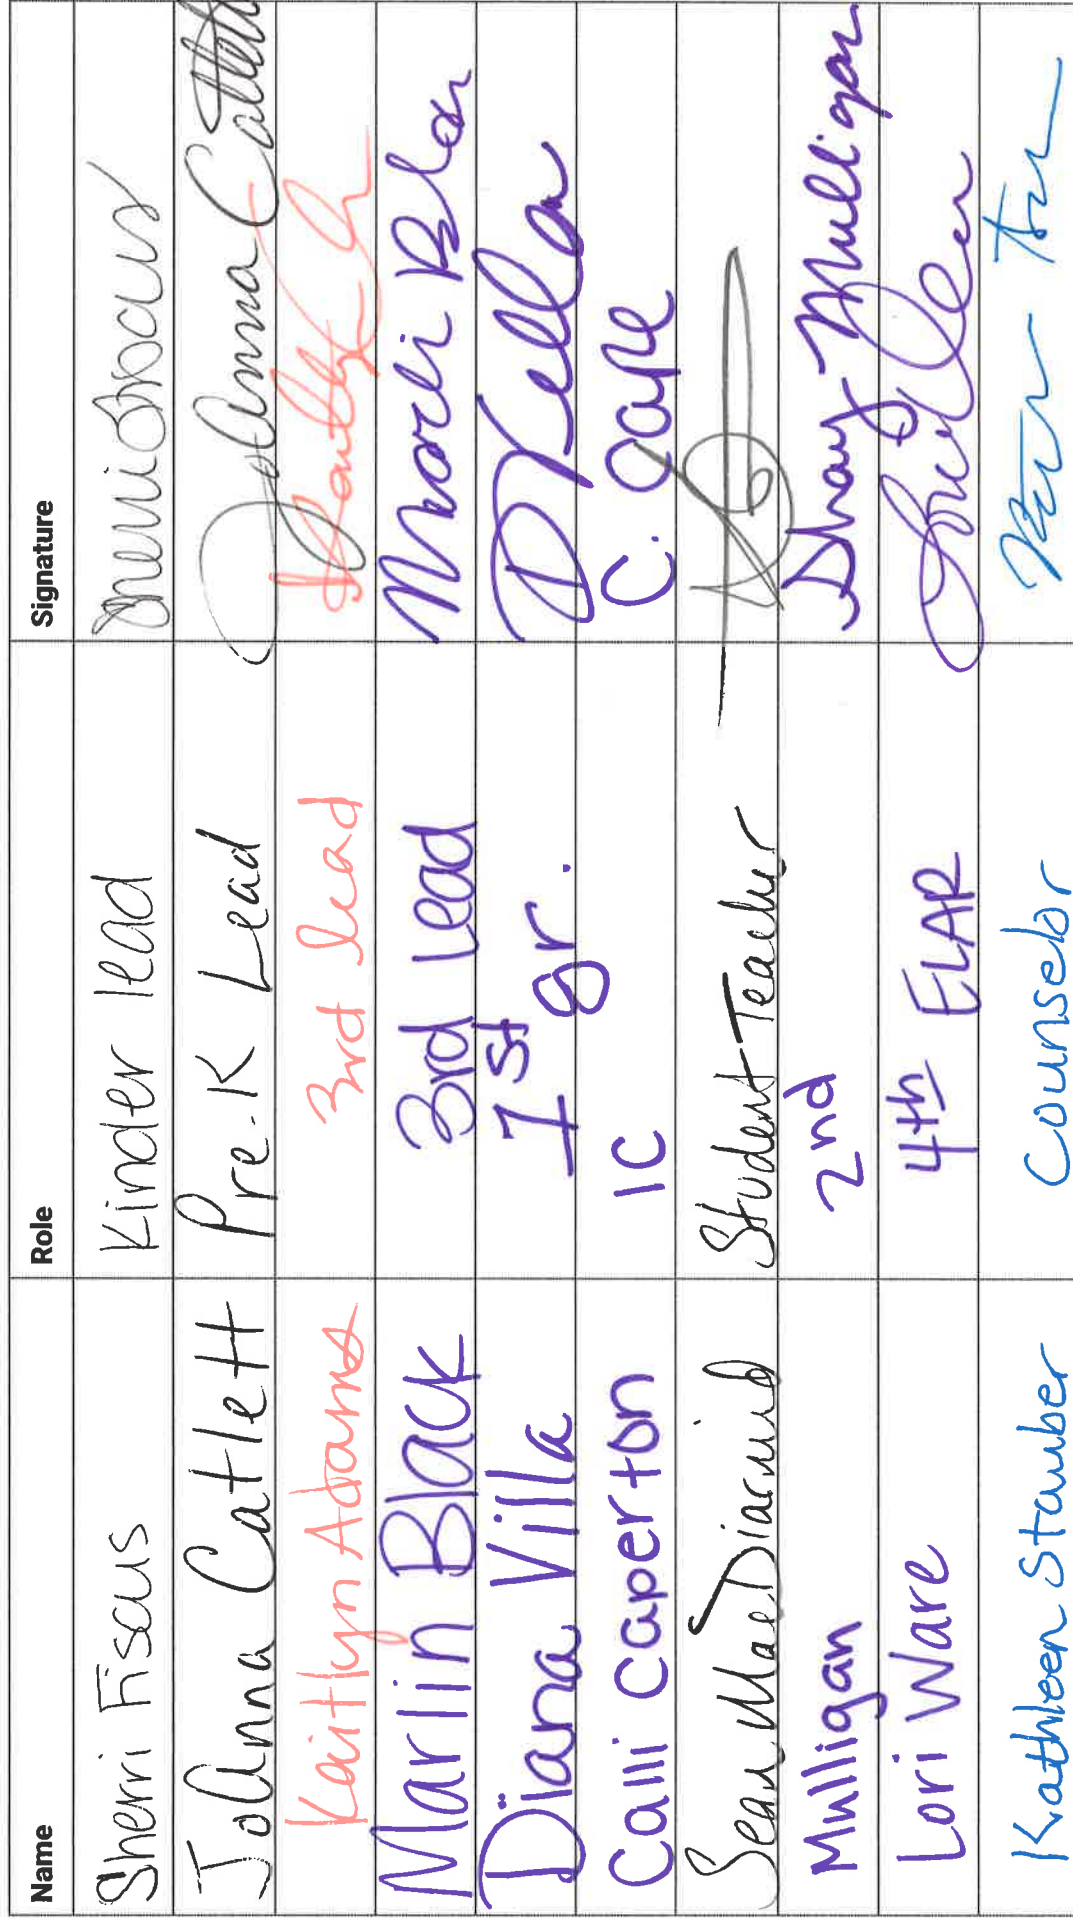 Name Role Signature
Sherri Fiscus Kinder lead
JoAnna Catlett Pre-K Lead JoAnna Catlett
Kaitlyn Adams 3rd lead
Marlin Black 3rd Lead
Diana Villa 1st gr.
Calli Caperton IC C. Cape
Sean MacDiarmid Student Teacher
Mulligan 2nd Shay Mulligan
Lori Ware 4th ELAR
Kathleen Stauber Counselor